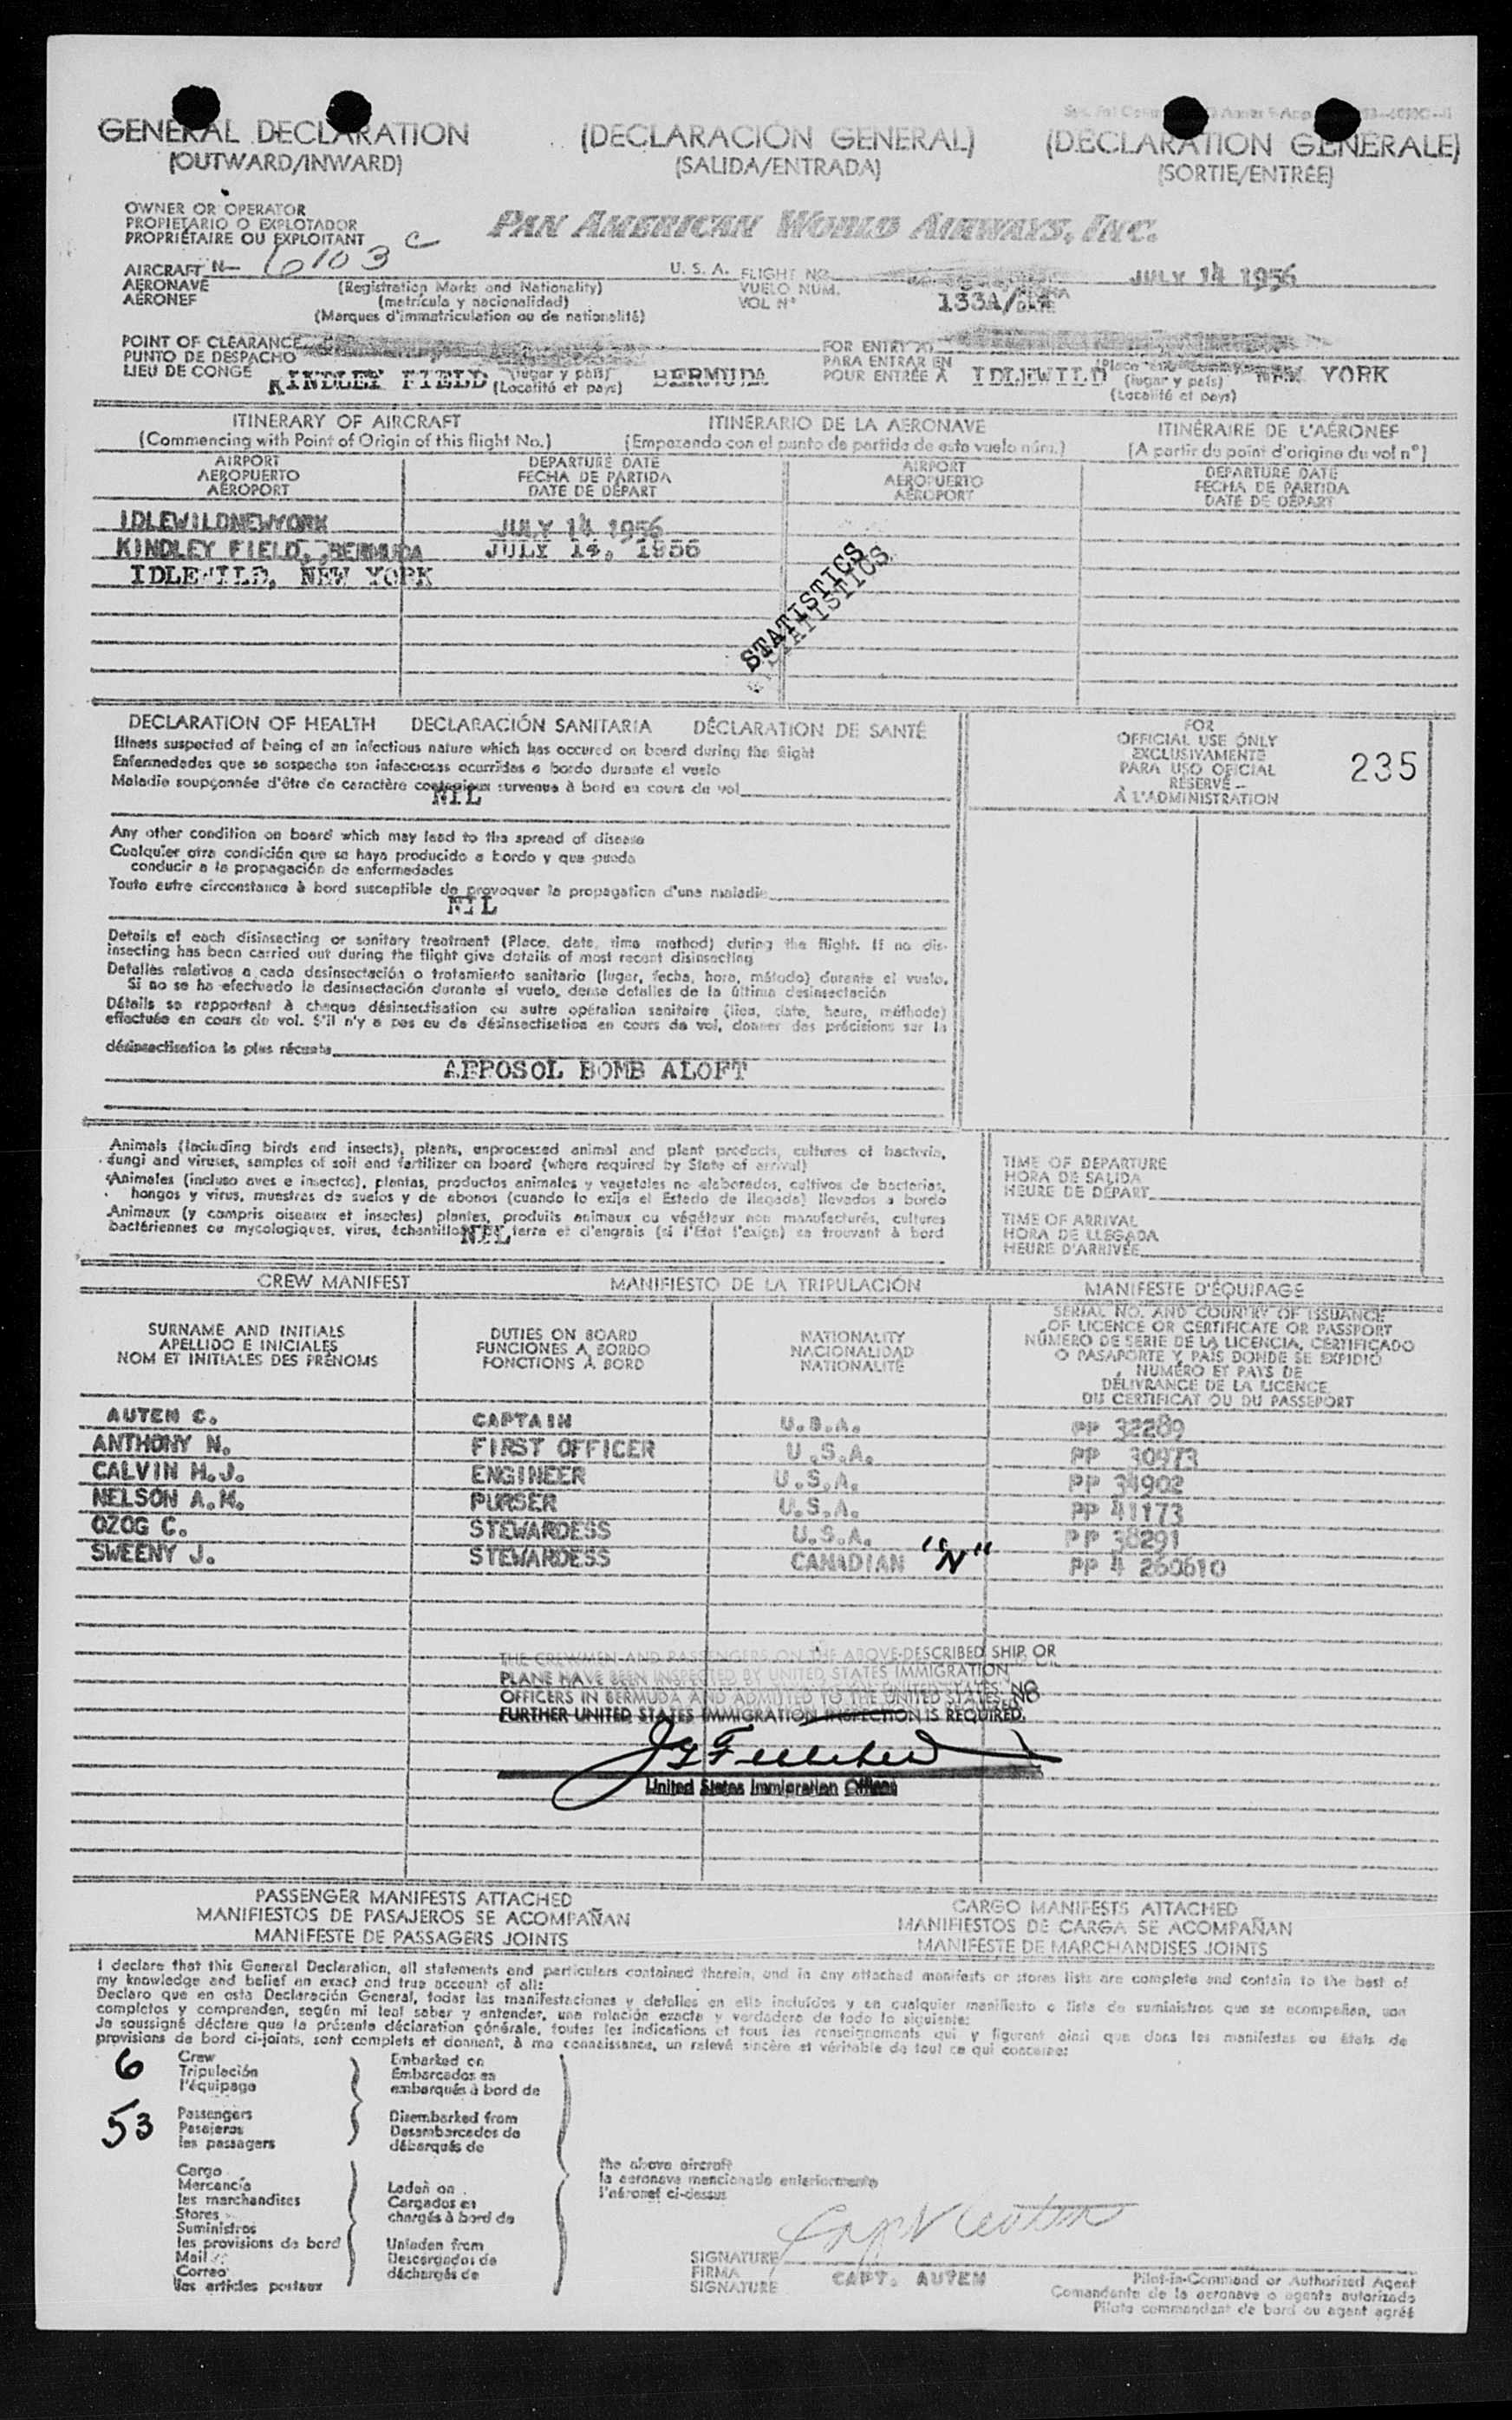 GENERAL DECLARATION (DECLARACIÓN GENERAL) (DÉCLARATION GÉNÉRALE)
(OUTWARD/INWARD) (SALIDA/ENTRADA) (SORTIE/ENTRÉE)
OWNER OR OPERATOR
PROPIETARIO O EXPLOTADOR
PROPRIÉTAIRE OU EXPLOITANT
PAN AMERICAN WORLD AIRWAYS, INC.
AIRCRAFT N- 6103 C U. S. A. FLIGHT NO. JULY 14 1956
AERONAVE (Registration Marks and Nationality) VUELO NUM. 133A/14
AÉRONEF (matrícula y nacionalidad) VOL N° DATE
(Marques d'immatriculation ou de nationalité)
POINT OF CLEARANCE FOR ENTRY TO
PUNTO DE DESPACHO PARA ENTRAR EN
LIEU DE CONGÉ KINDLEY FIELD (lugar y país) BERMUDA POUR ENTRÉE À IDLEWILD (lugar y país) NEW YORK
(Localité et pays) (Localité et pays)
ITINERARY OF AIRCRAFT ITINERARIO DE LA AERONAVE ITINÉRAIRE DE L'AÉRONEF
(Commencing with Point of Origin of this flight No.) (Empezando con el punto de partida de este vuelo núm.) (A partir du point d'origine du vol n°)
AIRPORT DEPARTURE DATE AIRPORT DEPARTURE DATE
AEROPUERTO FECHA DE PARTIDA AEROPUERTO FECHA DE PARTIDA
AÉROPORT DATE DE DÉPART AÉROPORT DATE DE DÉPART
IDLEWILDNEWYORK JULY 14 1956
KINDLEY FIELD, BERMUDA JULY 14, 1956
IDLEWILD, NEW YORK
STATISTICS
STATISTICS
DECLARATION OF HEALTH DECLARACIÓN SANITARIA DÉCLARATION DE SANTÉ
Illness suspected of being of an infectious nature which has occured on board during the flight
Enfermedades que se sospecha son infecciosas ocurridas a bordo durante el vuelo
Maladie soupçonnée d'être de caractère contagieux survenue à bord en cours de vol
NIL
FOR
OFFICIAL USE ONLY
EXCLUSIVAMENTE
PARA USO OFICIAL
RÉSERVÉ
À L'ADMINISTRATION
235
Any other condition on board which may lead to the spread of disease
Cualquier otra condición que se haya producido a bordo y que pueda
conducir a la propagación de enfermedades
Toute autre circonstance à bord susceptible de provoquer la propagation d'une maladie
NIL
Details of each disinsecting or sanitary treatment (Place, date, time method) during the flight. If no dis-
insecting has been carried out during the flight give details of most recent disinsecting
Detalles relativos a cada desinsectación o tratamiento sanitario (lugar, fecha, hora, método) durante el vuelo.
Si no se ha efectuado la desinsectación durante el vuelo, dense detalles de la última desinsectación
Détails se rapportant à chaque désinsectisation ou autre opération sanitaire (lieu, date, heure, méthode)
effectuée en cours de vol. S'il n'y a pas eu de désinsectisation en cours de vol, donner des précisions sur la
désinsectisation la plus récente
AEPOSOL BOMB ALOFT
Animals (including birds and insects), plants, unprocessed animal and plant products, cultures of bacteria,
fungi and viruses, samples of soil and fertilizer on board (where required by State of arrival)
Animales (incluso aves e insectos), plantas, productos animales y vegetales no elaborados, cultivos de bacterias,
hongos y virus, muestras de suelos y de abonos (cuando lo exija el Estado de llegada) llevados a bordo
Animaux (y compris oiseaux et insectes) plantes, produits animaux ou végétaux non manufacturés, cultures
bactériennes ou mycologiques, virus, échantillons NIL terre et d'engrais (si l'État l'exige) se trouvant à bord
TIME OF DEPARTURE
HORA DE SALIDA
HEURE DE DÉPART
TIME OF ARRIVAL
HORA DE LLEGADA
HEURE D'ARRIVÉE
CREW MANIFEST MANIFIESTO DE LA TRIPULACIÓN MANIFESTE D'ÉQUIPAGE
SURNAME AND INITIALS
APELLIDO E INICIALES
NOM ET INITIALES DES PRÉNOMS
DUTIES ON BOARD
FUNCIONES A BORDO
FONCTIONS À BORD
NATIONALITY
NACIONALIDAD
NATIONALITÉ
SERIAL NO. AND COUNTRY OF ISSUANCE
OF LICENCE OR CERTIFICATE OR PASSPORT
NÚMERO DE SERIE DE LA LICENCIA, CERTIFICADO
O PASAPORTE Y PAÍS DONDE SE EXPIDIÓ
NUMÉRO ET PAYS DE
DÉLIVRANCE DE LA LICENCE
DU CERTIFICAT OU DU PASSEPORT
AUTEN C. CAPTAIN U.S.A. PP 32289
ANTHONY N. FIRST OFFICER U.S.A. PP 30973
CALVIN H.J. ENGINEER U.S.A. PP 34902
NELSON A.M. PURSER U.S.A. PP 41173
OZOG C. STEWARDESS U.S.A. PP 38291
SWEENY J. STEWARDESS CANADIAN "N" PP 4 260610
THE CREWMEN AND PASSENGERS ON THE ABOVE-DESCRIBED SHIP OR
PLANE HAVE BEEN INSPECTED BY UNITED STATES IMMIGRATION
OFFICERS IN BERMUDA AND ADMITTED TO THE UNITED STATES. NO
FURTHER UNITED STATES IMMIGRATION INSPECTION IS REQUIRED.
United States Immigration Officer
PASSENGER MANIFESTS ATTACHED CARGO MANIFESTS ATTACHED
MANIFIESTOS DE PASAJEROS SE ACOMPAÑAN MANIFIESTOS DE CARGA SE ACOMPAÑAN
MANIFESTE DE PASSAGERS JOINTS MANIFESTE DE MARCHANDISES JOINTS
I declare that this General Declaration, all statements and particulars contained therein, and in any attached manifests or stores lists are complete and contain to the best of
my knowledge and belief an exact and true account of all:
Declaro que en esta Declaración General, todas las manifestaciones y detalles en ella incluídos y en cualquier manifiesto o lista de suministros que se acompañen, son
completos y comprenden, según mi leal saber y entender, una relación exacta y verdadera de todo lo siguiente:
Je soussigné déclare que la présente déclaration générale, toutes les indications et tous les renseignements qui y figurent ainsi que dans les manifestes ou états de
provisions de bord ci-joints, sont complets et donnent, à ma connaissance, un relevé sincère et véritable de tout ce qui concerne:
6 Crew
Tripulación
l'équipage
Embarked on
Embarcados en
embarqués à bord de
53 Passengers
Pasajeros
les passagers
Disembarked from
Desembarcados de
débarqués de
the above aircraft
la aeronave mencionada anteriormente
l'aéronef ci-dessus
Cargo
Mercancía
les marchandises
Stores
Suministros
les provisions de bord
Mail
Correo
les articles postaux
Laden on
Cargados en
chargés à bord de
Unladen from
Descargados de
déchargés de
Capt Auten
SIGNATURE
FIRMA
SIGNATURE
CAPT. AUTEN
Pilot-in-Command or Authorized Agent
Comandante de la aeronave o agente autorizado
Pilote commandant de bord ou agent agréé